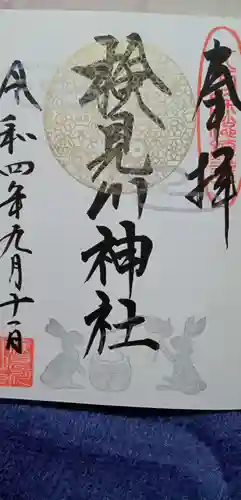 奉拝
検見川神社
令和四年九月十一日